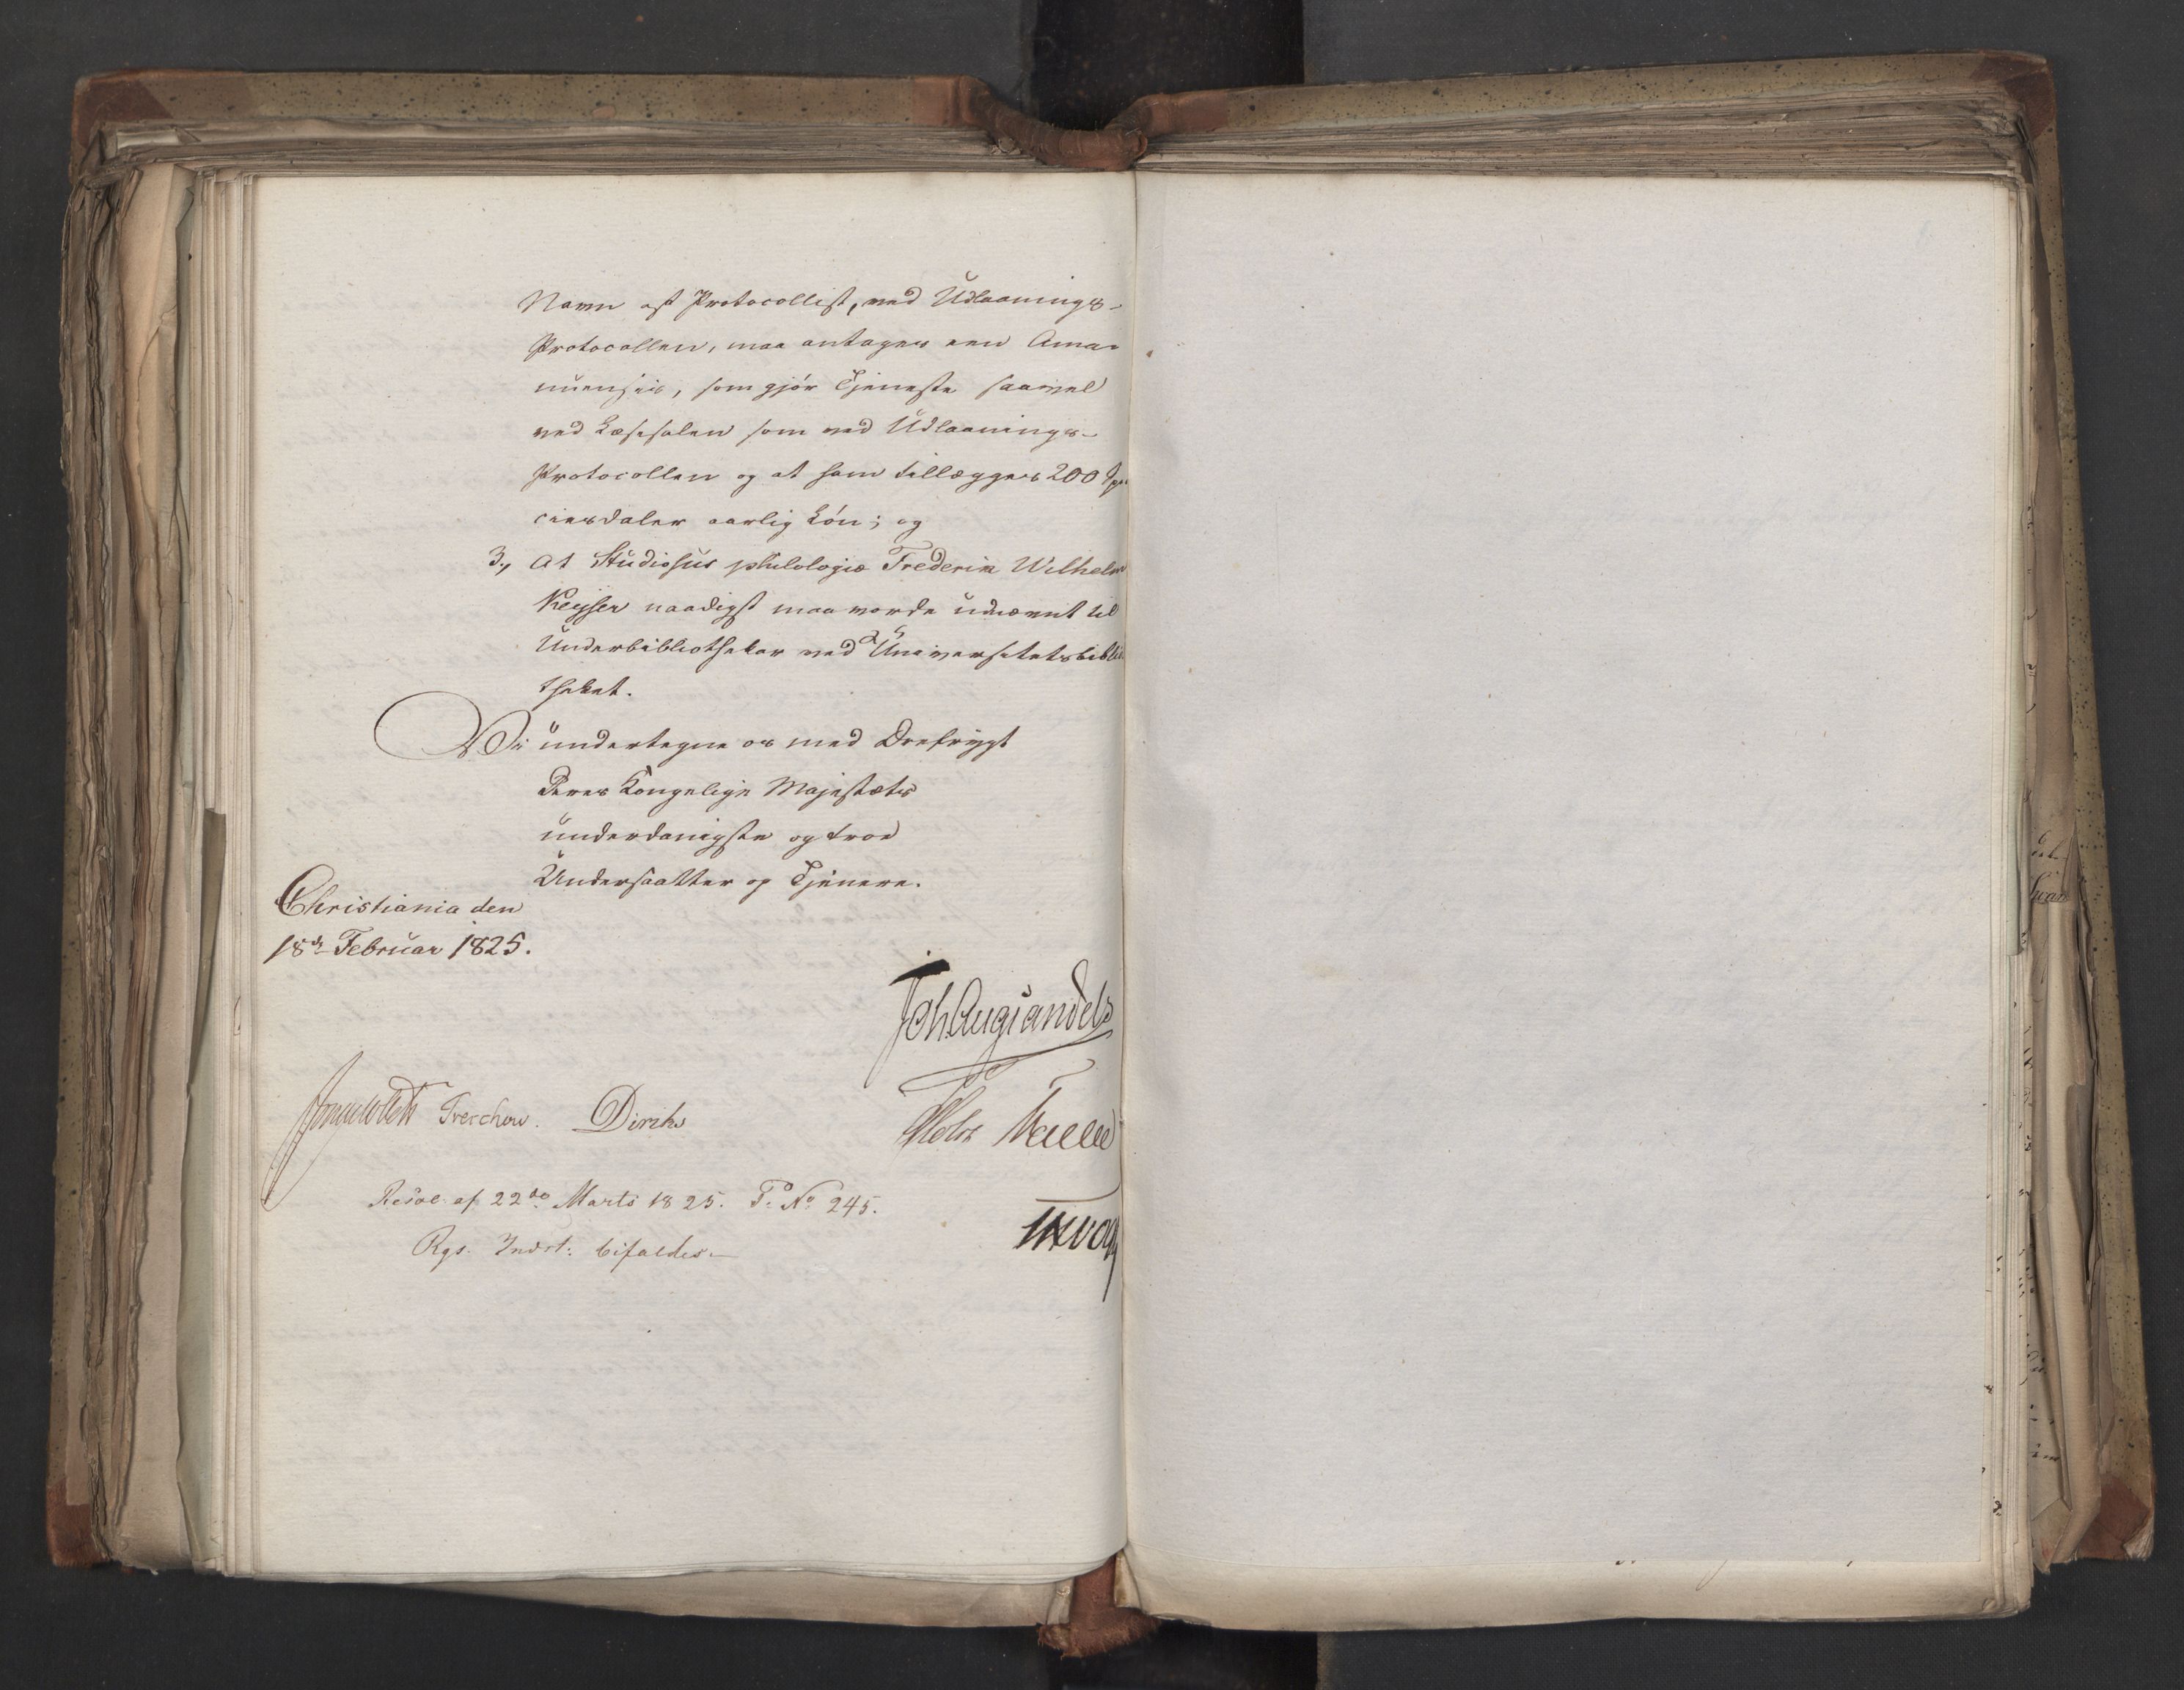 Navn af Protocollist, ved Udlaanings-
Protocollen, maa antages een Ama-
nuensis, som gjør Tjeneste saavel
ved Læsesalen som ved Udlaanings-
Protocollen og at ham tillægges 200 Spe
ciesdaler aarlig Løn; og
3., At Studiosus philologiæ Frederik Wilhelm
Keyser naadigst maa vorde udnævnt til
Underbibliothekar ved Universitetsbiblio
theket.
Vi undertegne os med Ærefrygt
Deres Kongelige Majestæts
underdanigste og troe
Undersaatter og Tjenere.
Christiania den
18de Februar 1825.
Joh. Aug. Sandels
Treschow. Diriks
Motzfeldt
Resol. af 22de Marts 1825. P. No 245.
Rgs. Indst: bifaldes.